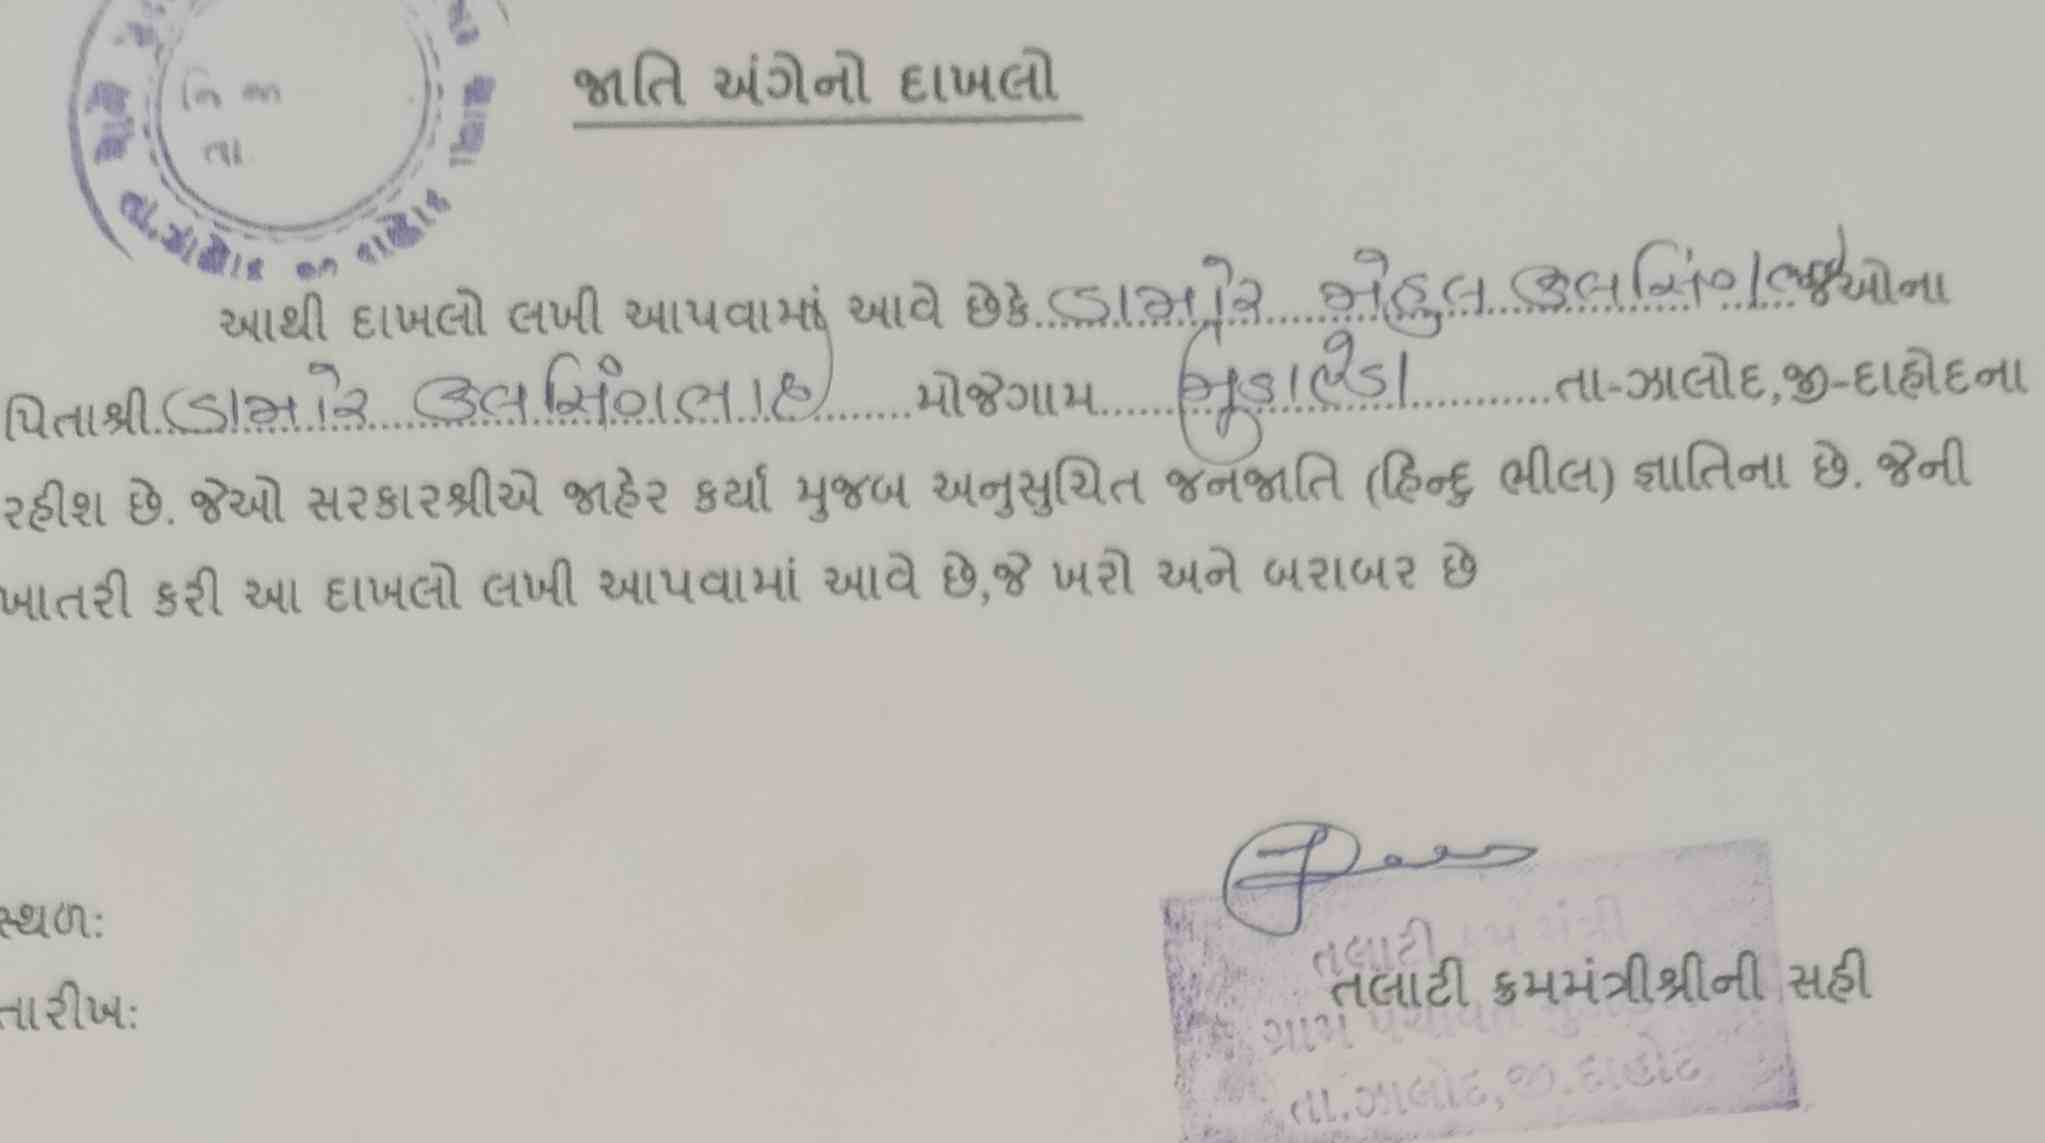 જાતિ અંગેનો દાખલો
આથી દાખલો લખી આપવામાં આવે છેકે ડામોર મેહુલ ફુલસિંગભાઇ જેઓના
પિતાશ્રી ડામોર ફુલસિંગભાઇ મોજેગામ મુડાહેડા તા-ઝાલોદ,જી-દાહોદના
રહીશ છે. જેઓ સરકારશ્રીએ જાહેર કર્યા મુજબ અનુસુચિત જનજાતિ (હિન્દુ ભીલ) જ્ઞાતિના છે. જેની
ખાતરી કરી આ દાખલો લખી આપવામાં આવે છે,જે ખરો અને બરાબર છે
સ્થળ:
તારીખ:
તલાટી
તલાટી ક્રમમંત્રીશ્રીની સહી
ગ્રામ પંચાયત
તા.ઝાલોદ,જી.દાહોદ
તા.ઝાલોદ જી દાહોદ